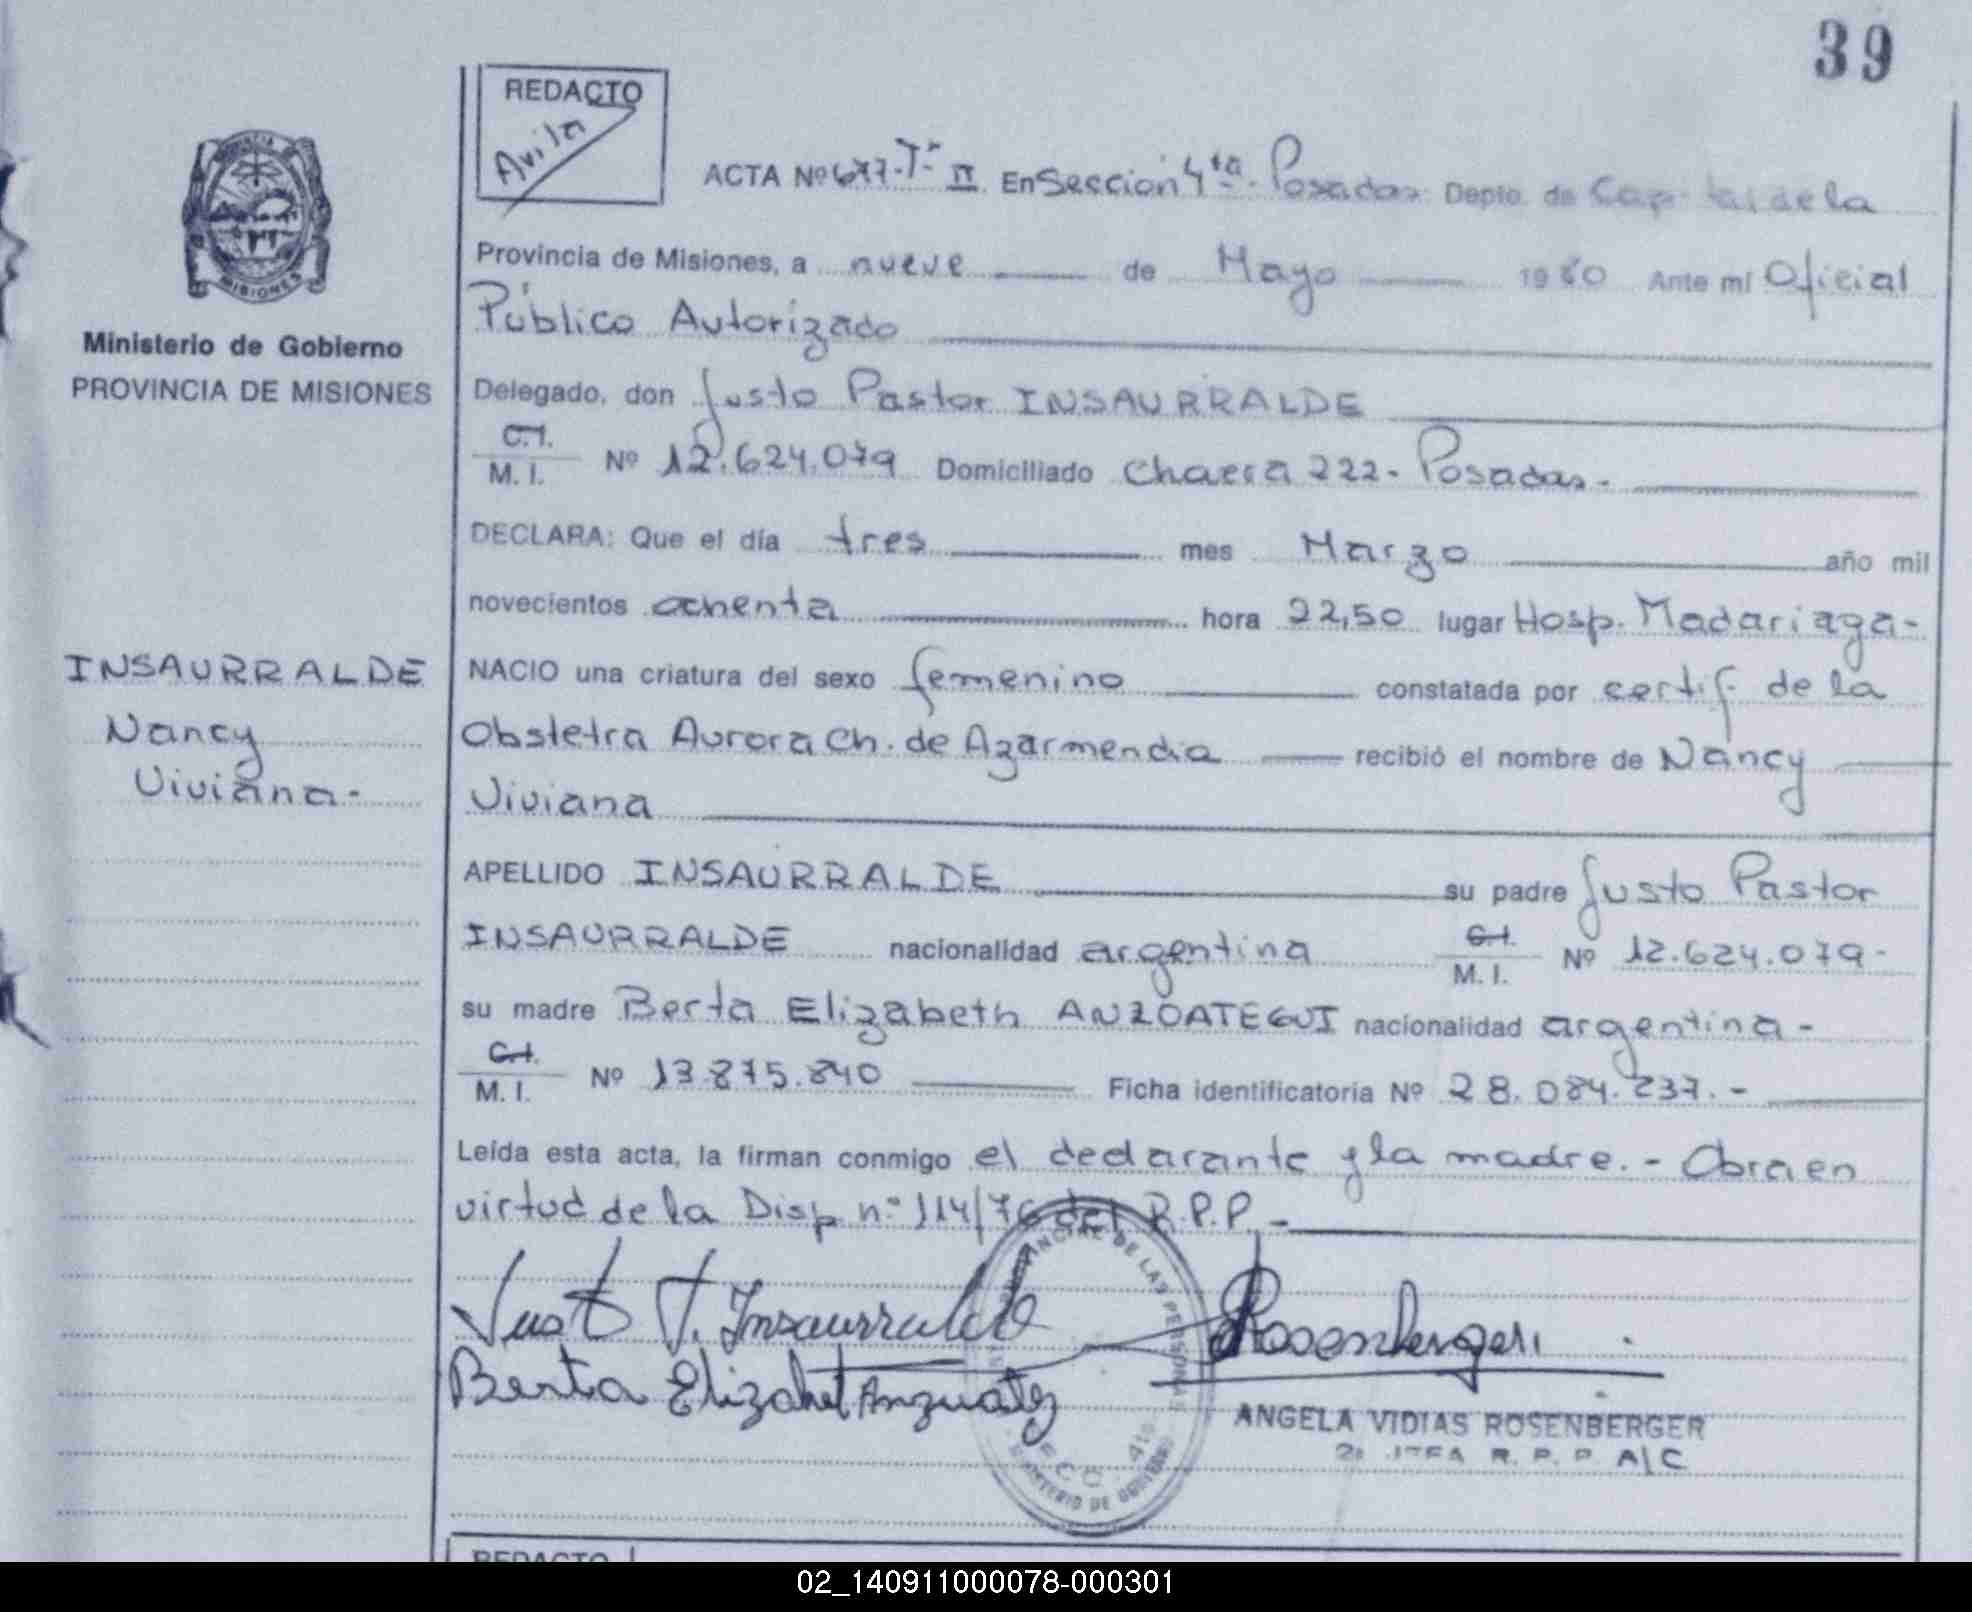 39
REDACTO
Avila
ACTA Nº 677-Tº II En Sección 4ta. Posadas Depto. de Capital de la
PROVINCIA
MISIONES
Ministerio de Gobierno
PROVINCIA DE MISIONES
Provincia de Misiones, a nueve de Mayo 1980 Ante mí Oficial
Público Autorizado
Delegado, don Justo Pastor INSAURRALDE
C.I.
M. I. Nº 12.624.079 Domiciliado Chacra 222 - Posadas.-
DECLARA: Que el día tres mes Marzo año mil
novecientos ochenta hora 22,50 lugar Hosp. Madariaga-
INSAURRALDE
Nancy
Viviana-
NACIO una criatura del sexo femenino constatada por certif. de la
Obstetra Aurora Ch. de Azarmendia recibió el nombre de Nancy
Viviana
APELLIDO INSAURRALDE su padre Justo Pastor
INSAURRALDE nacionalidad argentina C.I.
M. I. Nº 12.624.079-
su madre Berta Elizabeth ANZOATEGUI nacionalidad argentina-
C.I.
M. I. Nº 13.875.840 Ficha identificatoria Nº 28.084.237.-
Leída esta acta, la firman conmigo el declarante y la madre.- Obra en
virtud de la Disp. nº 114/76 del R.P.P.-
Justo P. Insaurralde
Rosenberger
Berta Elizabet
PROVINCIAL DE LAS PERSONAS
MINISTERIO DE GOBIERNO
ANGELA VIDIAS ROSENBERGER
R. P. P. A/C
REDACTO
02_140911000078-000301